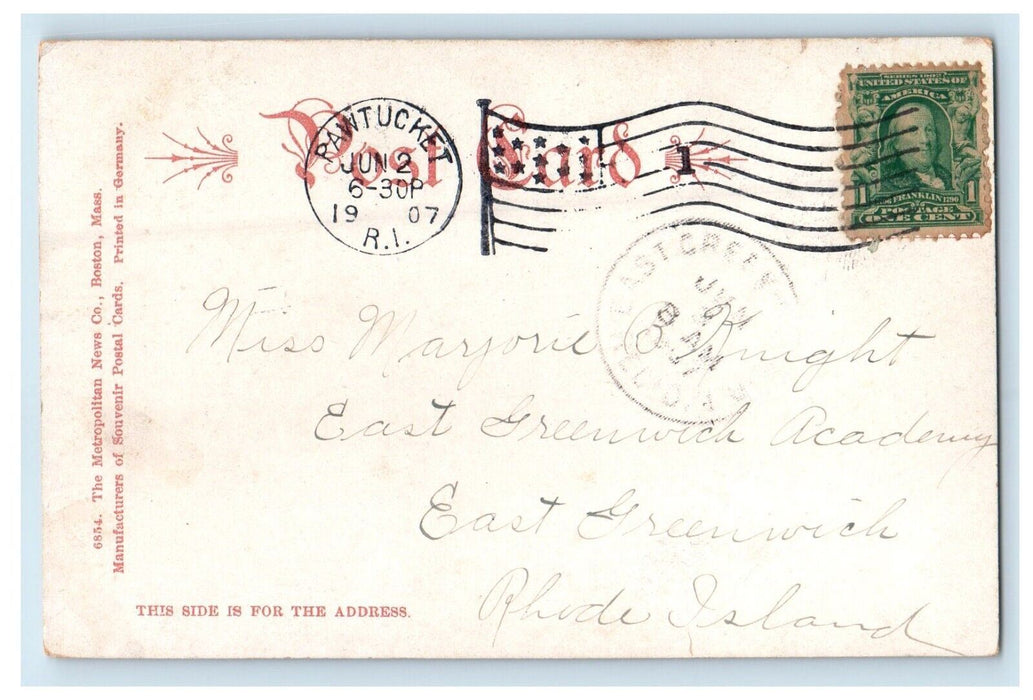 Post Card
PAWTUCKET
JUN 2
6-30P
19 07
R.I.
1
SERIES 1902
UNITED STATES OF
AMERICA
1 FRANKLIN 1790 1
POSTAGE
ONE CENT
EAST GREEN
JUN
AM
R.I.
Miss Marjorie B Knight
East Greenwich Academy
East Greenwich
Rhode Island
THIS SIDE IS FOR THE ADDRESS.
6854. The Metropolitan News Co., Boston, Mass.
Manufacturers of Souvenir Postal Cards. Printed in Germany.